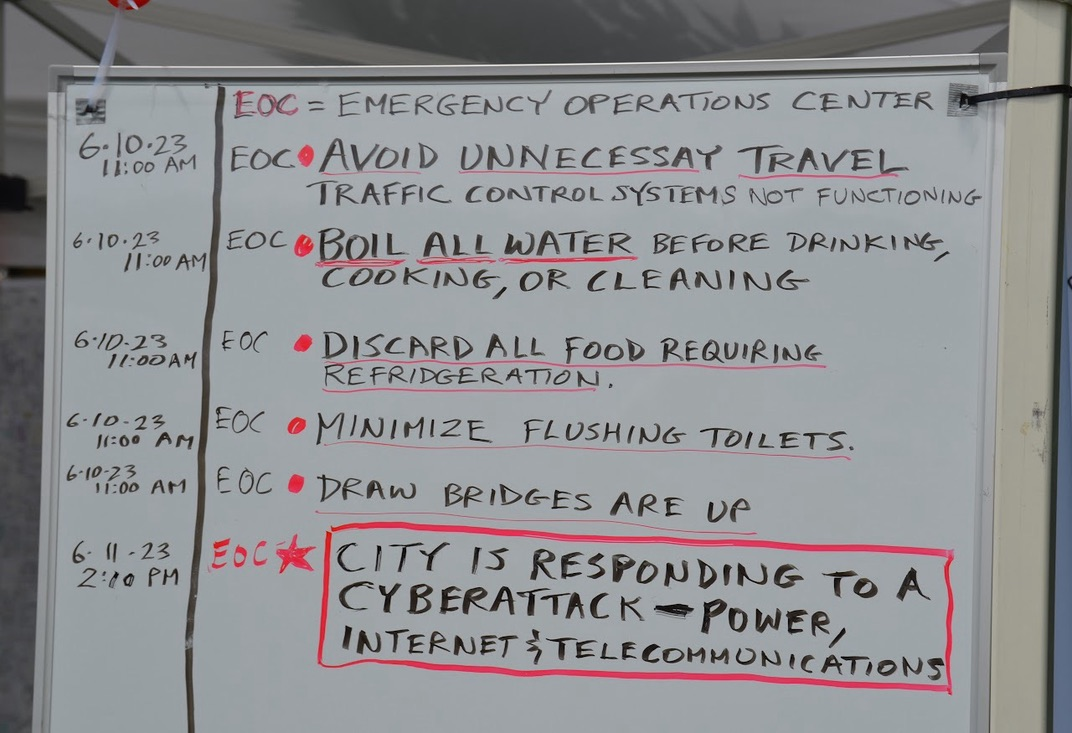 EOC = EMERGENCY OPERATIONS CENTER
6.10.23 EOC • AVOID UNNECESSAY TRAVEL
11:00 AM TRAFFIC CONTROL SYSTEMS NOT FUNCTIONING
6.10.23 EOC • BOIL ALL WATER BEFORE DRINKING,
11:00 AM COOKING, OR CLEANING
6.10.23 EOC • DISCARD ALL FOOD REQUIRING
11:00 AM REFRIDGERATION.
6.10.23 EOC • MINIMIZE FLUSHING TOILETS.
11:00 AM
6.10.23 EOC • DRAW BRIDGES ARE UP
11:00 AM
6.11.23 EOC ★ CITY IS RESPONDING TO A
2:10 PM CYBERATTACK - POWER,
INTERNET & TELECOMMUNICATIONS